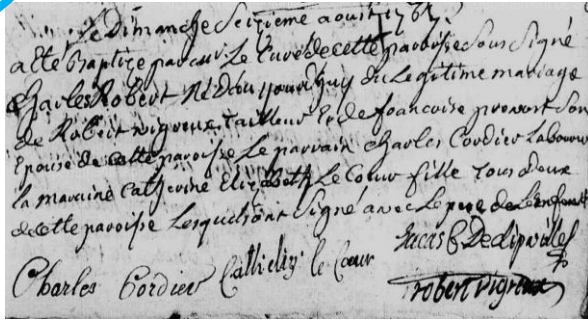 Le Dimanche Seizieme aoust 1767
a été Baptizé par moi Le Curé de cette paroisse Soussigné
Charles Robert Né d'aujourd'huy du Legitime mariage
de Robert vigreux Tailleur Et de francoise prevost Son
Epouse de cette paroisse Le parrain Charles Cordier Laboureur
la maraine Catherine Elizabeth Le Cœur fille Tous deux
de cette paroisse Lesquels ont Signé avec Le pere de L'enfant
Charles Cordier Cath eliz le Cœur
robert vigreux